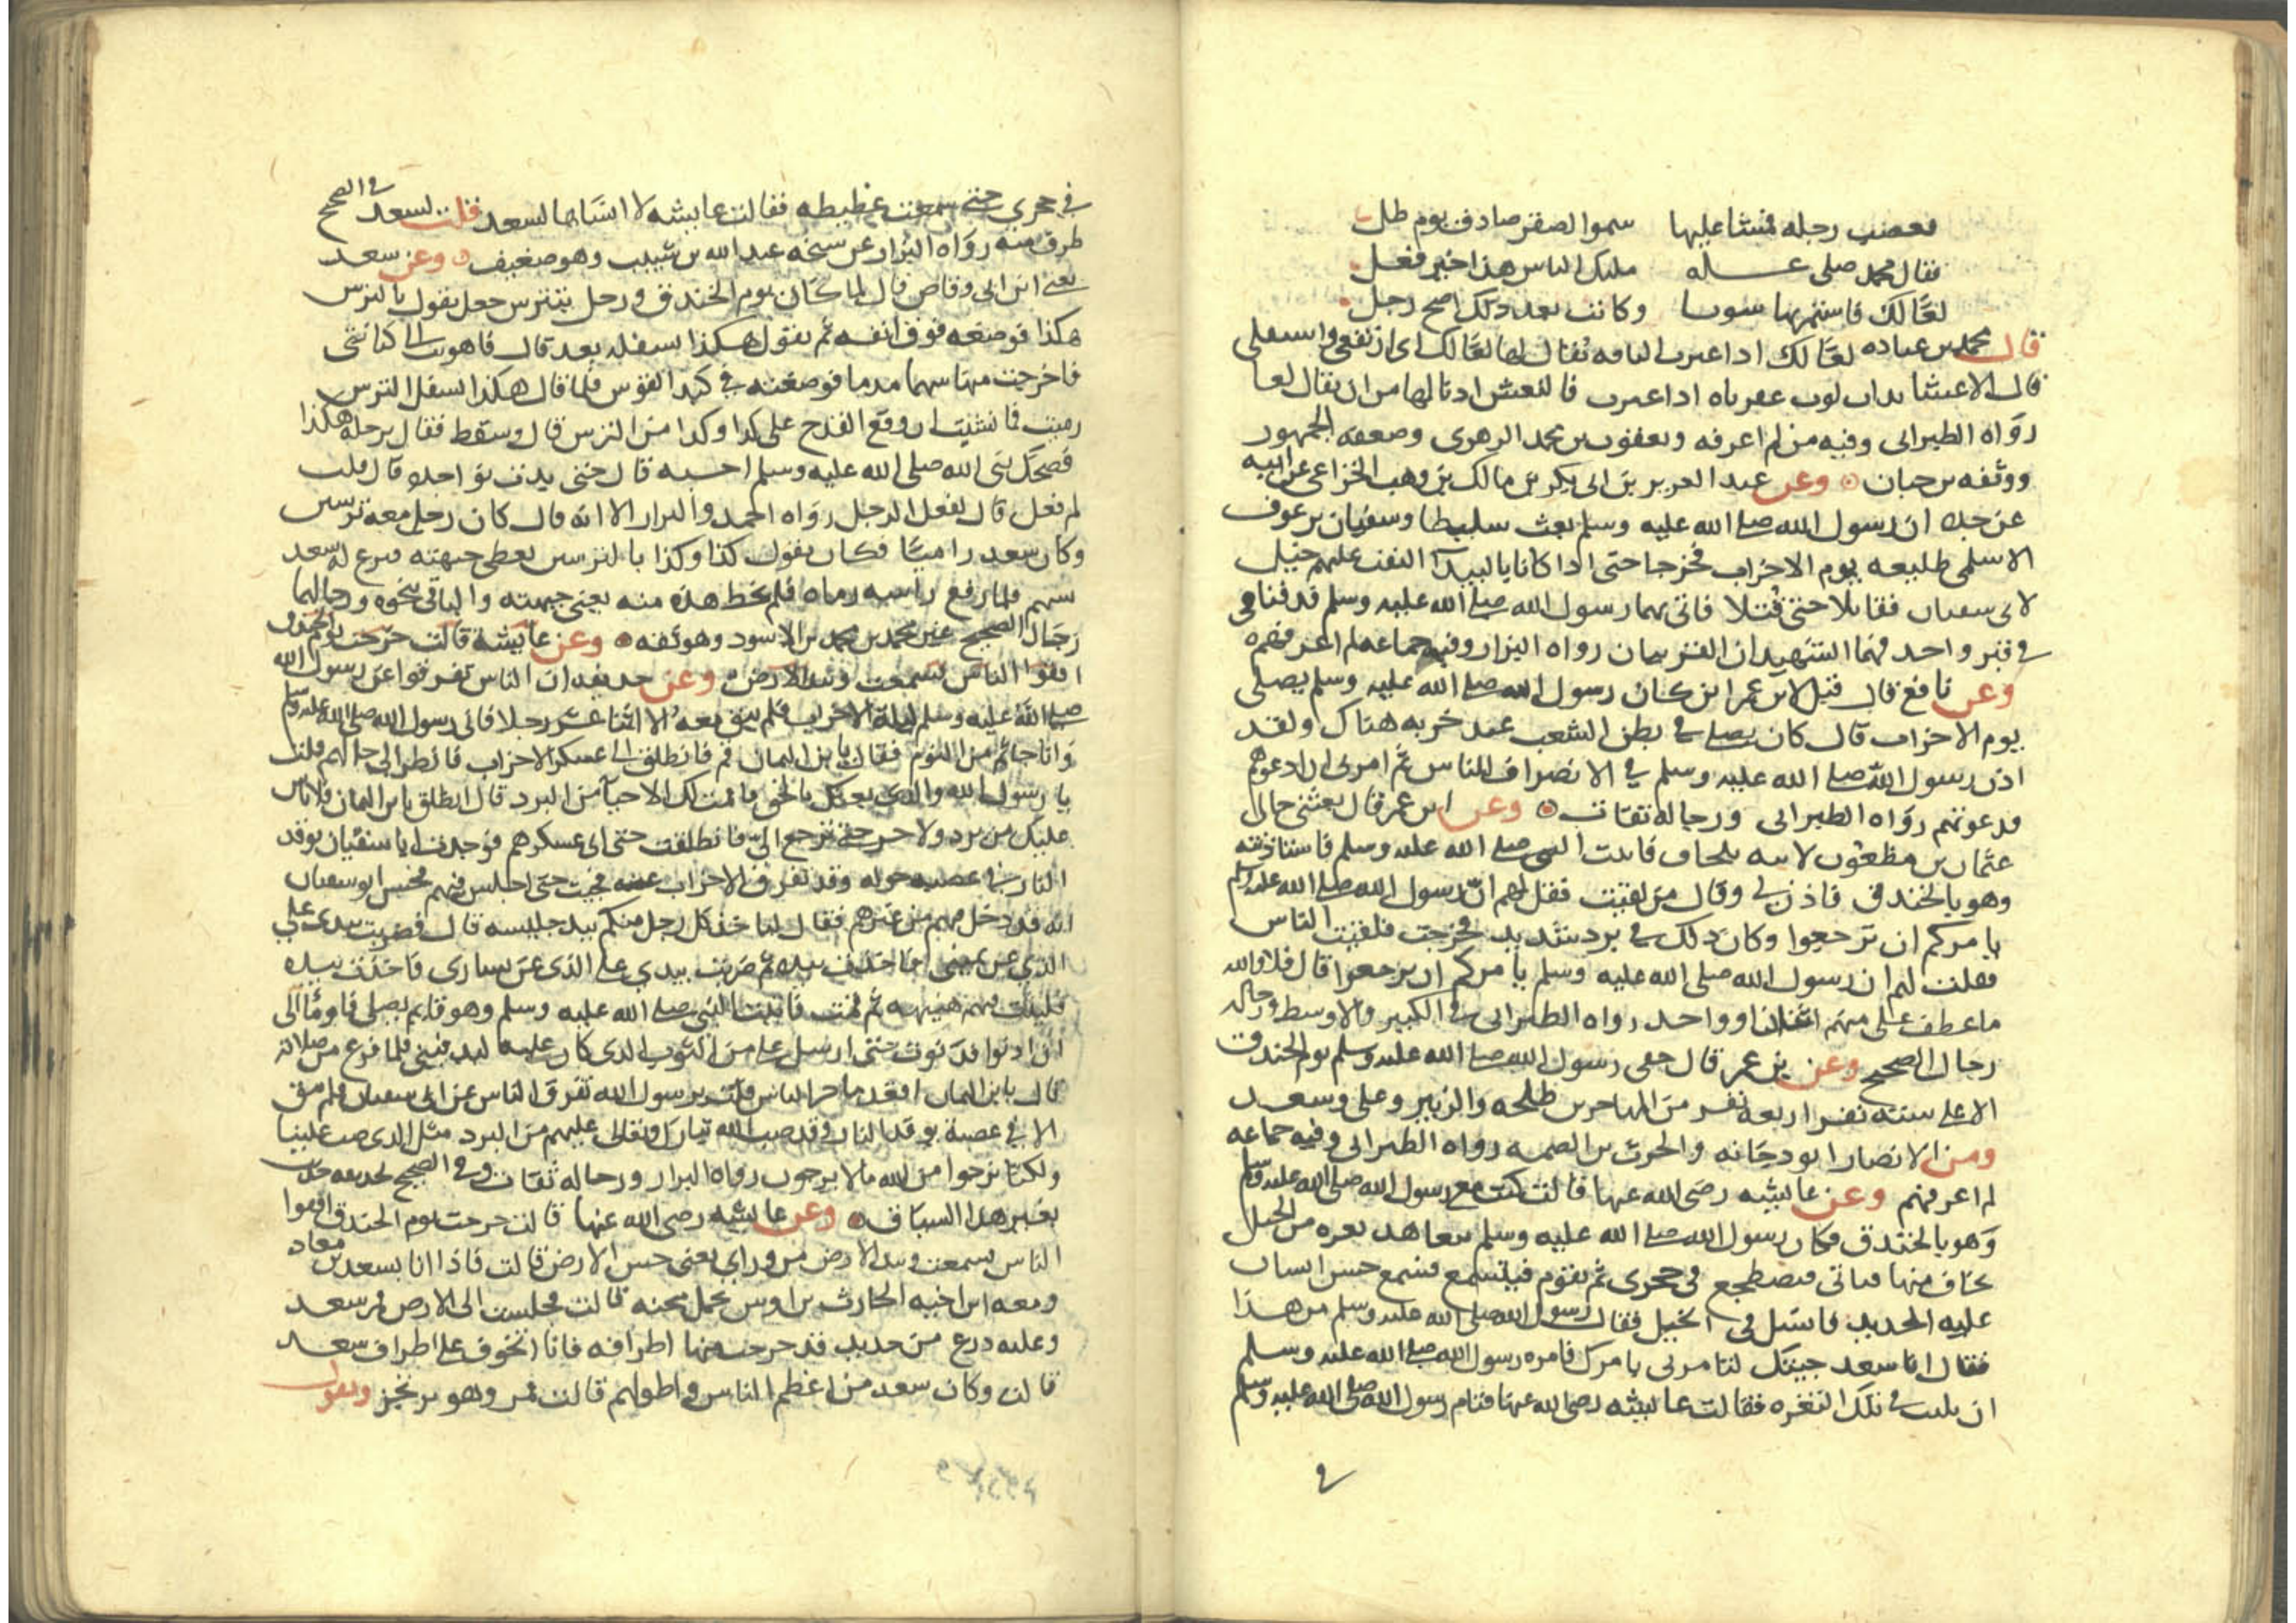 فعصب رجله فمشا عليها سموا الصقر صادف يوم طل
فقال محمد صلى عليه مليك الناس هذا خير فعل
لعًا لك فاستمر بها سويا وكانت بعد ذلك اصح رجل
قال محمد بن عباده لعًا لك اذا عثرت الناقه تقال لها لعًا لك اى ارتفعى واستعلى
قال الاعشا بذات لوث عفرناه اذا عثرت فالتعس ادنا لها من ان يقال لعا
رواه الطبرانى وفيه من لم اعرفه ويعقوب بن محمد الزهرى وضعفه الجمهور
ووثقه بن حبان وعن عبد العزيز بن ابى بكر بن مالك بن وهب الخزاعى عن ابيه
عن جده ان رسول الله صلى الله عليه وسلم بعث سليطا وسفيان بن عوف
الاسلمى طليعه يوم الاحزاب فخرجا حتى اذا كانا بالبيدآ التفت عليهم خيل
لابى سفيان فقاتلا حتى قتلا فاتى بهما رسول الله صلى الله عليه وسلم فدفنا
فى قبر واحد فهما الشهيدان القرينان رواه البزار وفيه جماعه لم اعرفهم
وعن نافع قال قيل لابن عمر اين كان رسول الله صلى الله عليه وسلم يصلى
يوم الاحزاب قال كان يصلى فى بطن الشعب عند خربه هناك ولقد
اذن رسول الله صلى الله عليه وسلم فى الانصراف للناس ثم امرنى ان ادعوهم
فدعوتهم رواه الطبرانى ورجاله ثقات وعن ابن عمر قال بعثنى خالى
عثمان بن مظعون لاتيه بلحاف فاتيت النبى صلى الله عليه وسلم فاستاذنته
وهو بالخندق فاذن لى وقال من لقيت فقل لهم ان رسول الله صلى الله عليه وسلم
يامركم ان ترجعوا وكان ذلك فى برد شديد فخرجت فلقيت الناس
فقلت لهم ان رسول الله صلى الله عليه وسلم يامركم ان ترجعوا قال فلا والله
ما عطف على منهم اثنان او واحد رواه الطبرانى فى الكبير والاوسط ورجاله
رجال الصحيح وعن بن عمر قال رسول الله صلى الله عليه وسلم يوم الخندق
الا على سته نفر اربعه نفر من المهاجرين طلحه والزبير وعلى وسعد
ومن الانصار ابو دجانه والحرث بن الصمه رواه الطبرانى وفيه جماعه
لم اعرفهم وعن عايشه رضى الله عنها قالت كنت مع رسول الله صلى الله عليه وسلم
وهو بالخندق فكان رسول الله صلى الله عليه وسلم يتعاهد ثغره من الجبل
يخاف منها فياتى فيضطجع فى حجرى ثم يقوم فيتسمع فسمع حس انسان
عليه الحديد فانسل فى الجبل فقال رسول الله صلى الله عليه وسلم من هذا
فقال انا سعد جيتك لتامرنى بامرك فامره رسول الله صلى الله عليه وسلم
ان يلبث فى تلك الثغره فقالت عايشه رضى الله عنها فنام رسول الله صلى الله عليه وسلم
فى
فى حجرى حتى سمعت غطيطه فقالت عايشه لا انساها لسعد قلت لسعد فى الصحيح
طرق منه رواه البزار عن شيخه عبد الله بن شبيب وهو ضعيف وعن سعد
يعنى ابن ابى وقاص قال لما كان يوم الخندق ورجل يتترس جعل يقول بالترس
هكذا فوضعه فوق انفه ثم يقول هكذا يسفله بعد قال فاهويت الى كنانتى
فاخرجت منها سهما مدما فوضعته فى كبد القوس فلما قال هكذا اسفل الترس
رميت فما نسيت ان وقع القدح على كذا وكذا من الترس قال وسقط فقال برجله هكذا
فضحك نبى الله صلى الله عليه وسلم احسبه قال حتى بدت نواجده قال قلت
لم فعل قال لفعل الرجل رواه احمد والبزار الا انه قال كان رجل معه ترسين
وكان سعد راميا فكان يقول كذا وكذا بالترسين يغطى جبهته فنزع له سعد
سهم فلما رفع راسه رماه فلم يخط هذه منه يعنى جبهته والباقى بنحوه ورجالهما
رجال الصحيح غير محمد بن محمد بن الاسود وهو ثقه وعن عايشه قالت خرجت يوم الخندق
اقفوا الناس فسمعت وئيد الارض وعن حذيفه ان الناس تفرقوا عن رسول الله
صلى الله عليه وسلم ليلة الاحزاب فلم يبق معه الا اثنا عشر رجلا فاتى رسول الله صلى الله عليه وسلم
وانا جاثم من النوم فقال يا بن اليمان قم فانطلق الى عسكر الاحزاب فانظر الى حالهم قلت
يا رسول الله والذى بعثك بالحق ما قمت لك الا حيآ من البرد قال انطلق يا بن اليمان فلا باس
عليك من برد ولا حر حتى ترجع الى فانطلقت حتى اتى عسكرهم فوجدت ابا سفيان يوقد
النار فى عصبه حوله وقد تفرق الاحزاب عنه فجيت حتى اجلس فيهم فحس ابو سفيان
انه قد دخل فيهم من غيرهم فقال لياخذ كل رجل منكم بيد جليسه قال فضربت بيدى على
الذى عن يمينى فاخذت بيده ثم ضربت بيدى على الذى عن يسارى فاخذت بيده
فلبثت فيهم هنيهه ثم قمت فاتيت النبى صلى الله عليه وسلم وهو قايم يصلى فاومأ الى
ان ادنوا فدنوت حتى ارسل على من الثوب الذى كان عليه ليدفينى فلما فرغ من صلاته
قال يا بن اليمان اقعد ما خبر الناس قلت يرسول الله تفرق الناس عن ابى سفيان فلم يبق
الا فى عصبة يوقد النار وقد صب الله تبارك وتعالى عليهم من البرد مثل الذى صب علينا
ولكنا نرجوا من الله ما لا يرجون رواه البزار ورجاله ثقات وفى الصحيح لحذيفه حديث
بغير هذا السياق وعن عايشه رضى الله عنها قالت خرجت يوم الخندق اقفوا
الناس فسمعت وئيد الارض من وراى يعنى حس الارض قالت فاذا انا بسعد بن معاذ
ومعه ابن اخيه الحارث بن اوس يحمل مجنه قالت فجلست الى الارض فمر سعد
وعليه درع من حديد قد خرجت منها اطرافه فانا اتخوف على اطراف سعد
قالت وكان سعد من اعظم الناس واطولهم قالت فمر وهو يرتجز ويقول